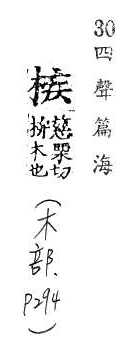 30 四聲篇海
槉
慈栗切
枅木也
(木部. P294)